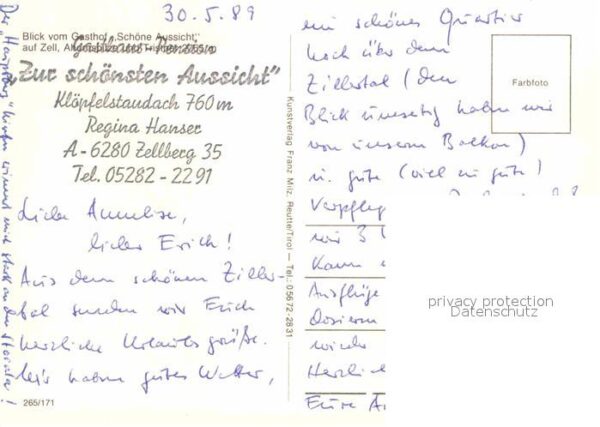 30.5.89
Blick vom Gasthof „Schöne Aussicht,"
auf Zell,
Gasthaus - Pension
„Zur schönsten Aussicht"
Klöpfelstaudach 760 m
Regina Hanser
A - 6280 Zellberg 35
Tel. 05282 - 2291
Liebe Annelise,
lieber Erich!
Aus dem schönen Ziller-
tal senden wir Euch
herzliche Urlaubsgrüße.
Wir haben gutes Wetter,
265/171
Kunstverlag Franz Milz, Reutte/Tirol — Tel. 05672-2831
ein schönes Quartier
hoch über dem
Zillertal (den
Blick haben wir
von unserem Balkon)
u. gute (viel zu gute)
Verpfleg
wir 3
Kann
Ausflüge
wieder
Herzlich
Eure
Farbfoto
privacy protection
Datenschutz
Der